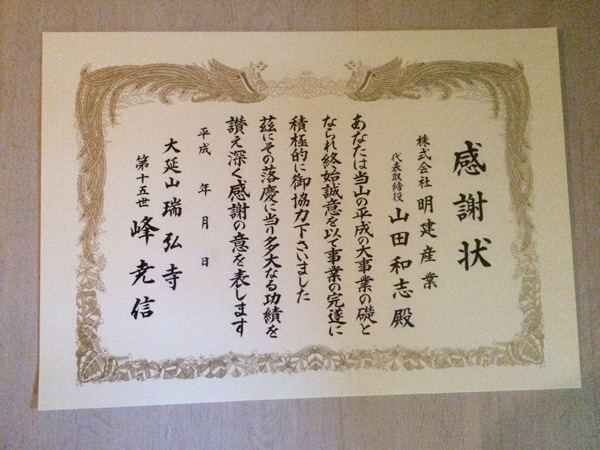 感謝状
株式会社 明建産業
代表取締役 山田和志殿
あなたは当山の平成の大事業の礎と
なられ終始誠意を以て事業の完遂に
積極的に御協力下さいました
茲にその落慶に当り多大なる功績を
讃え深く感謝の意を表します
平成 年 月 日
大延山 瑞弘寺
第十五世 峰尭信